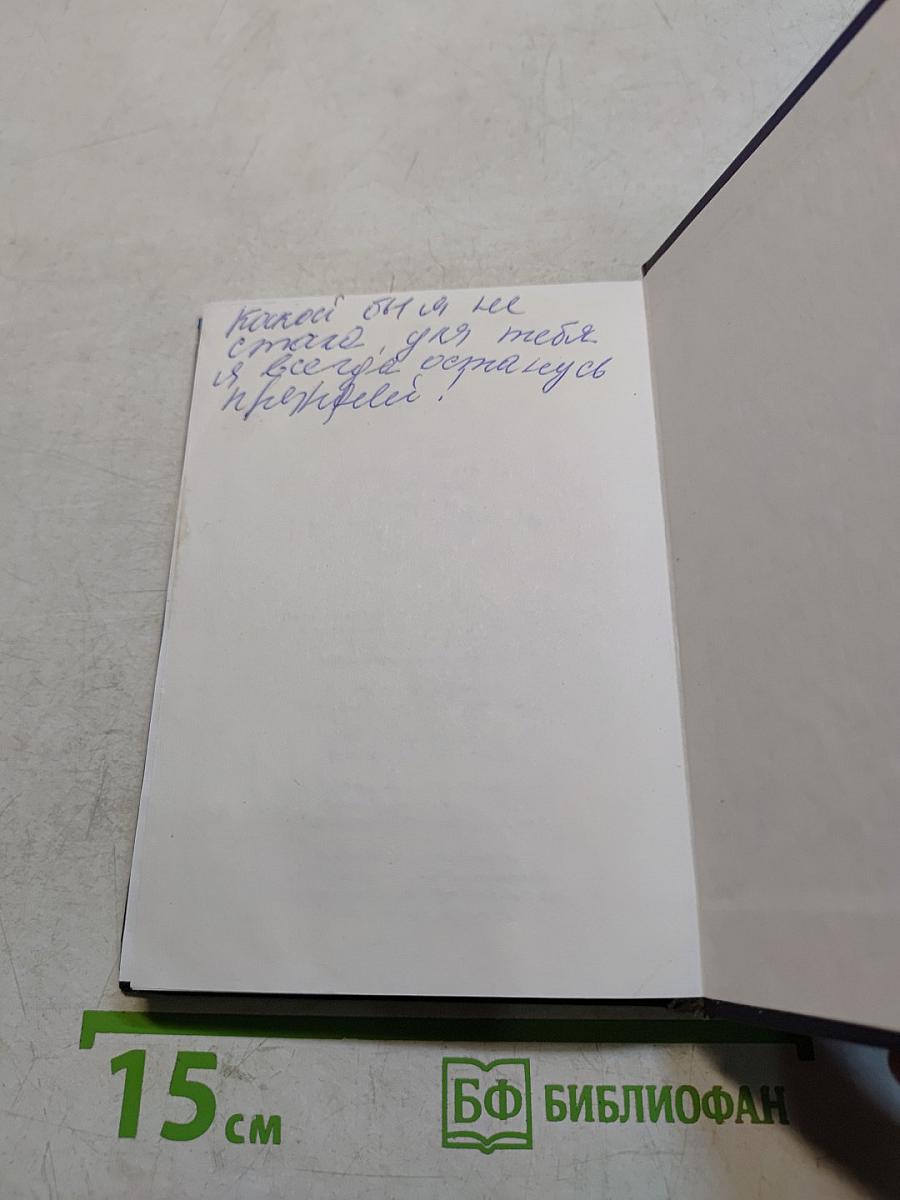 Какой бы я не
стала, для тебя
я всегда останусь
прежней!
15 см
БФ БИБЛИОФАН